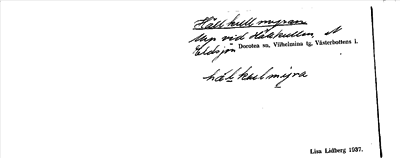 Hålkullmyran
Myr vid Hålkullen, N
Eldsjön Dorotea sn, Vilhelmina tg, Västerbottens l.
Lisa Lidberg 1937.